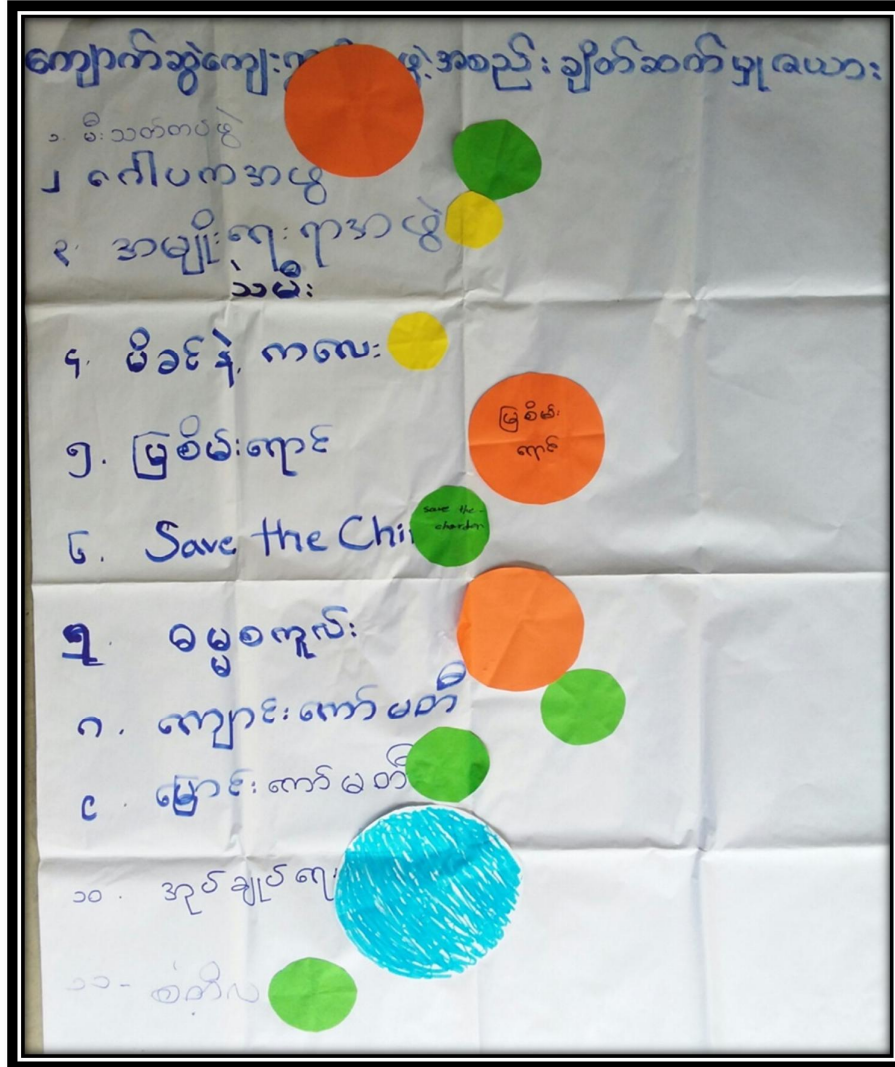 ကျောက်ဆွဲကျေး ဖွဲ့အစည်း ချိတ်ဆက်မှုဇယား
၁. မီးသတ်တပ်ဖွဲ့
၂ ဂေါပကအဖွဲ့
၃. အမျိုး ရေးရာအဖွဲ့
သမီး
၄. မိခင်နဲ့ ကလေး
၅. မြစိမ်းရောင်
မြစိမ်း
ရောင်
၆. Save the Chi
save the
၇. ဓမ္မစကူးလ်
၈. ကျောင်းကော်မတီ
၉. မြောင်းကော်မတီ
၁၀. အုပ်ချုပ်ရေး
၁၁-